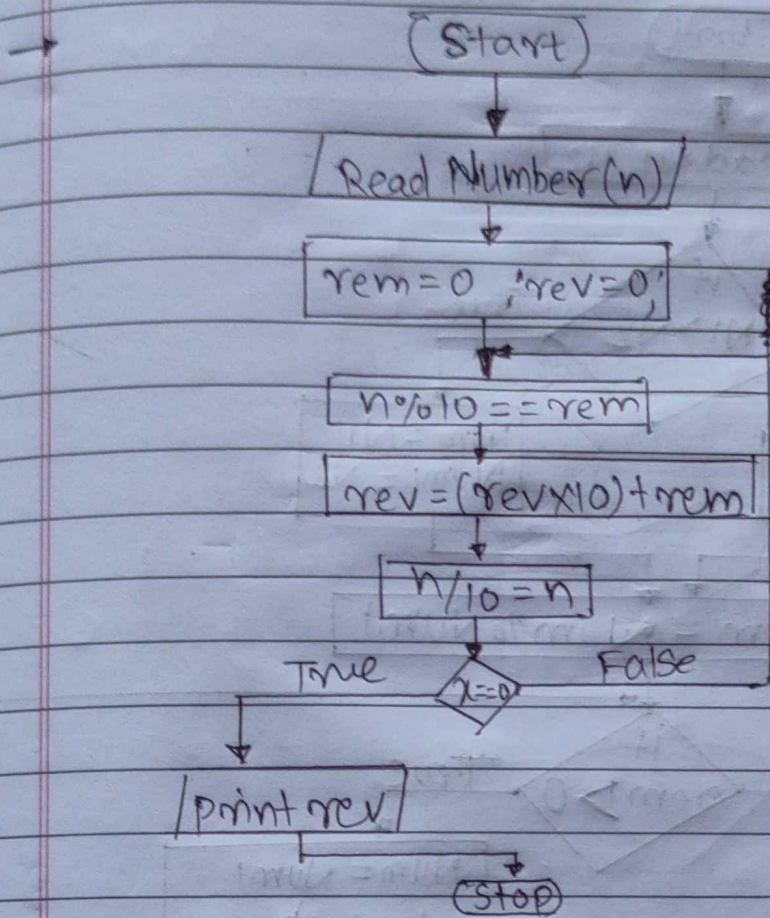 Start
Read Number (n)
rem = 0 , rev = 0;
n%10 == rem
rev = (rev×10) + rem
n/10 = n
True
x==0
False
print rev
Stop